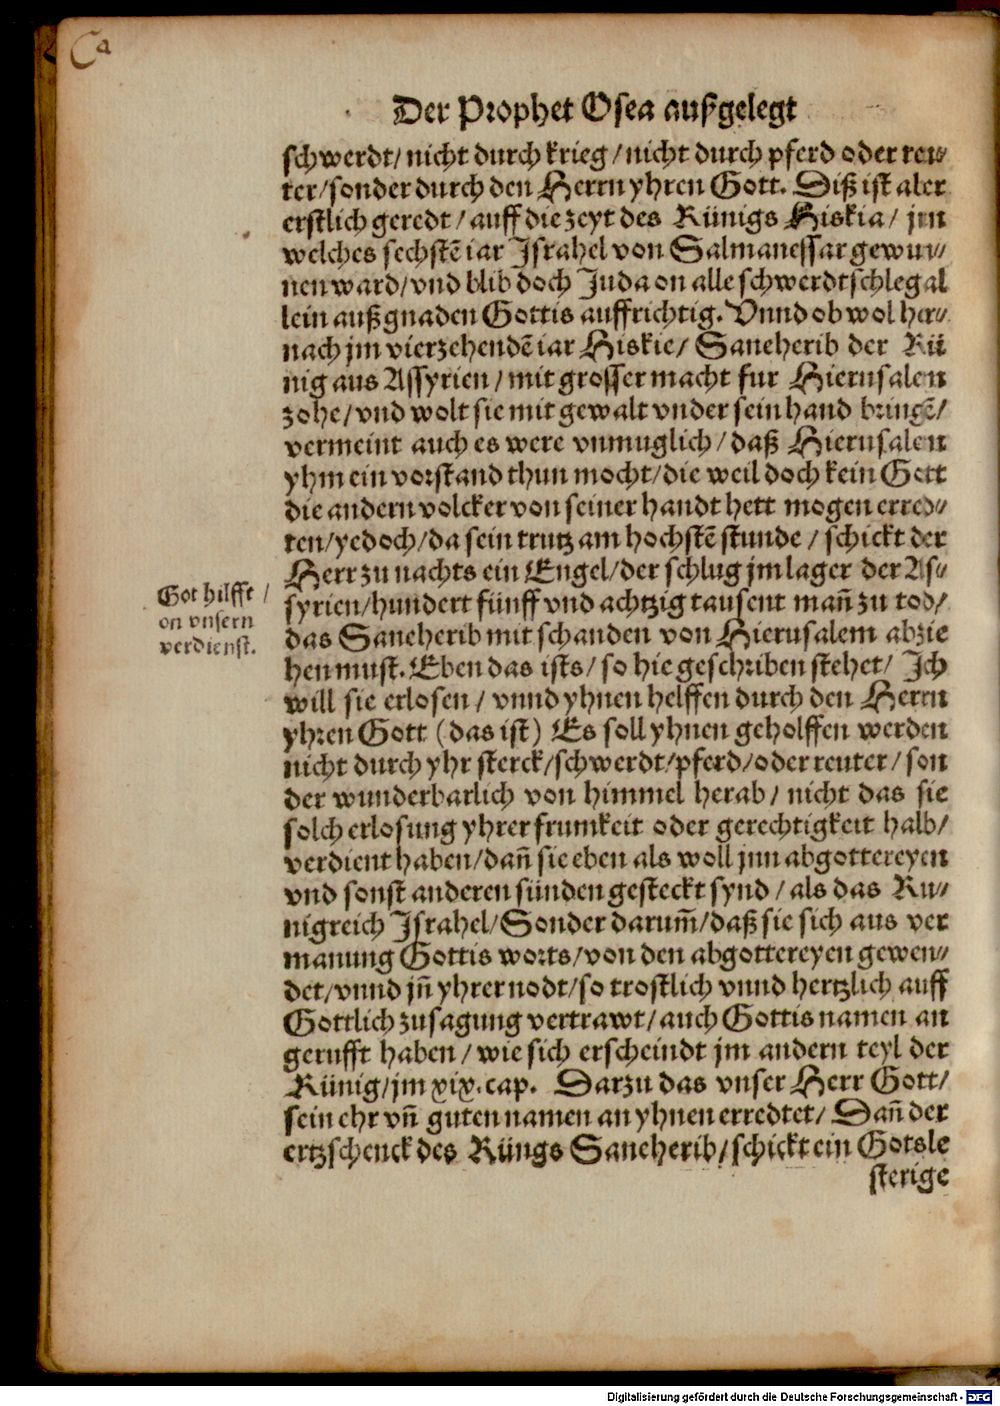 Ca
Der Prophet Osea außgelegt
schwerdt/ nicht durch krieg/ nicht durch pferd oder reu⸗
ter/ sonder durch den Herrn yhren Gott. Diß ist aber
erstlich geredt/ auff die zeyt des Künigs Hiskia/ jm
welches sechstẽ iar Israhel von Salmanessar gewun⸗
nen ward/ vnd blib doch Juda on alle schwerdtschleg al
lein auß gnaden Gottis auffrichtig. Vnnd ob wol her⸗
nach jm vierzehendẽ iar Hiskie/ Saneherib der Kü
nig aus Assyrien/ mit grosser macht fur Hierusalem
zohe/ vnd wolt sie mit gewalt vnder sein hand bringẽ/
vermeint auch es were vnmuglich/ daß Hierusalem
yhm ein vorstand thun mocht/ die weil doch kein Gott
die andern volcker von seiner handt hett mogen erred⸗
ten/ yedoch/ da sein trutz am hochstẽ stunde/ schickt der
Herr zu nachts ein Engel/ der schlug jm lager der As⸗
syrien/ hundert fünff vnd achtzig tausent mañ zu tod/
das Saneherib mit schanden von Hierusalem abzie
hen must. Eben das ists/ so hie geschriben stehet/ Ich
will sie erlosen/ vnnd yhnen helffen durch den Herrn
yhren Gott (das ist) Es soll yhnen geholffen werden
nicht durch yhr sterck/ schwerdt/ pferd/ oder reuter/ son
der wunderbarlich von himmel herab/ nicht das sie
solch erlosung yhrer frumkeit oder gerechtigkeit halb/
verdient haben/ dañ sie eben als woll jnn abgottereyen
vnd sonst anderen sünden gesteckt synd/ als das Ku⸗
nigreich Israhel/ Sonder darum̃/ daß sie sich aus ver
manung Gottis worts/ von den abgottereyen gewen⸗
det/ vnnd jñ yhrer nodt/ so trostlich vnnd hertzlich auff
Gottlich zusagung vertrawt/ auch Gottis namen an
gerufft haben/ wie sich erscheindt jm andern teyl der
Künig/ jm xix. cap. Darzu das vnser Herr Gott/
sein ehr vñ guten namen an yhnen erredtet/ Dañ der
ertzschenck des Küngs Saneherib/ schickt ein Gotsle
sterige
Got hilfft/
on vnsern
verdienst.
Digitalisierung gefördert durch die Deutsche Forschungsgemeinschaft - DFG